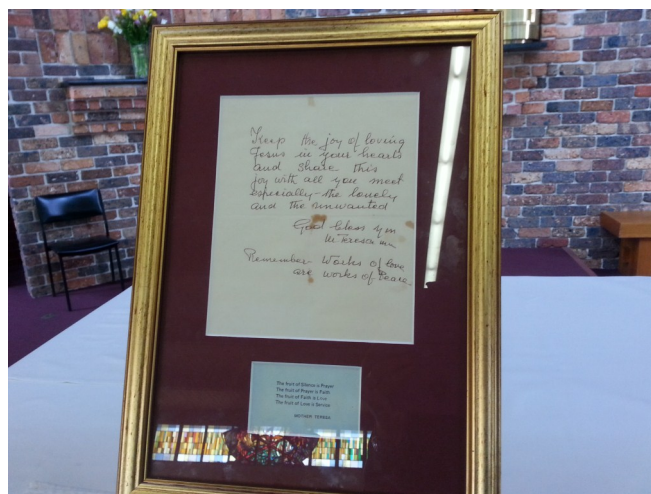 Keep the joy of loving
Jesus in your hearts
and share this
joy with all you meet
especially - the lonely
and the unwanted
God bless you
M Teresa mc
Remember Works of love
are works of Peace.
The fruit of Silence is Prayer
The fruit of Prayer is Faith
The fruit of Faith is Love
The fruit of Love is Service
MOTHER TERESA